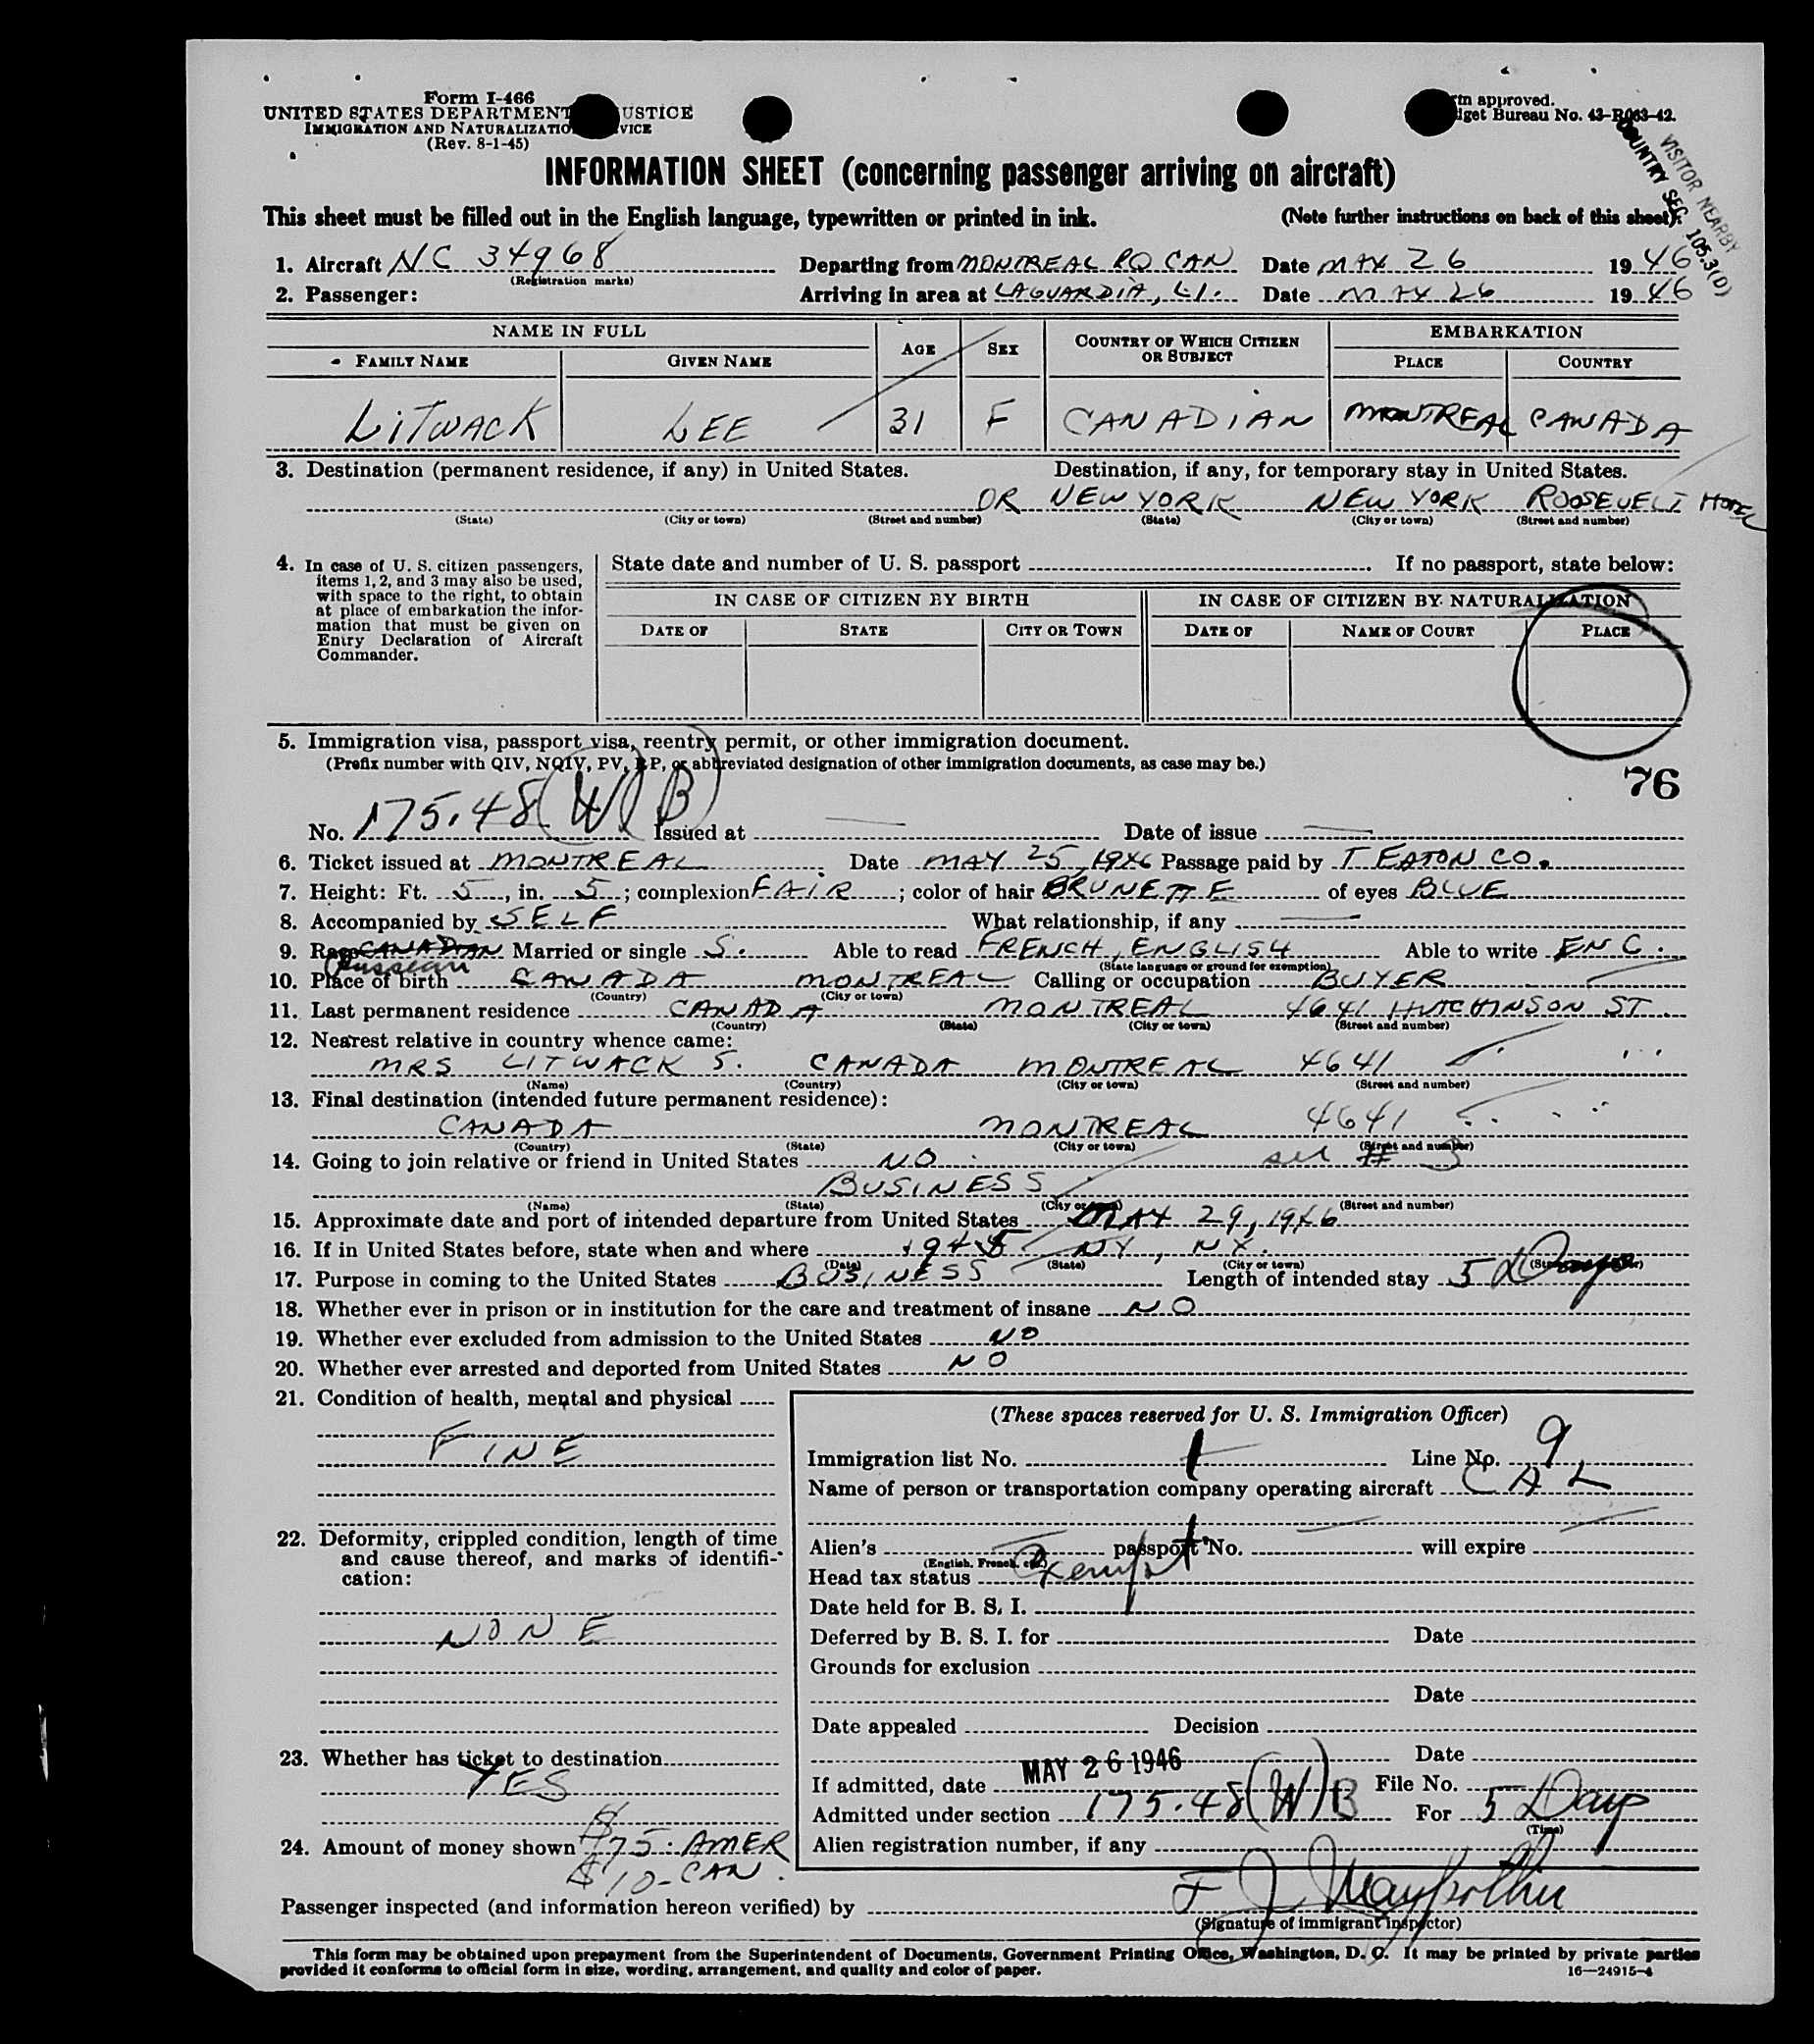 Form I-466
UNITED STATES DEPARTMENT USTICE
IMMIGRATION AND NATURALIZATIO VICE
(Rev. 8-1-45)
rm approved.
dget Bureau No. 43-R063-42.
VISITOR NEARBY
COUNTRY SEC. 105.3(D)
INFORMATION SHEET (concerning passenger arriving on aircraft)
This sheet must be filled out in the English language, typewritten or printed in ink. (Note further instructions on back of this sheet)
1. Aircraft NC 34968 Departing from MONTREAL PQ CAN Date MAY 26 1946
(Registration marks)
2. Passenger: Arriving in area at LAGUARDIA, L.I. Date MAY 26 1946
NAME IN FULL AGE SEX COUNTRY OF WHICH CITIZEN OR SUBJECT EMBARKATION
FAMILY NAME GIVEN NAME PLACE COUNTRY
LITWACK LEE 31 F CANADIAN MONTREAL CANADA
3. Destination (permanent residence, if any) in United States. Destination, if any, for temporary stay in United States.
OR NEW YORK NEW YORK ROOSEVELT HOTEL
(State) (City or town) (Street and number) (State) (City or town) (Street and number)
4. In case of U. S. citizen passengers, items 1, 2, and 3 may also be used, with space to the right, to obtain at place of embarkation the information that must be given on Entry Declaration of Aircraft Commander.
State date and number of U. S. passport If no passport, state below:
IN CASE OF CITIZEN BY BIRTH IN CASE OF CITIZEN BY NATURALIZATION
DATE OF STATE CITY OR TOWN DATE OF NAME OF COURT PLACE
5. Immigration visa, passport visa, reentry permit, or other immigration document.
(Prefix number with QIV, NQIV, PV, RP, or abbreviated designation of other immigration documents, as case may be.)
76
No. 175.48 (W) B Issued at — Date of issue —
6. Ticket issued at MONTREAL Date MAY 25, 1946 Passage paid by T EATON CO.
7. Height: Ft. 5, in. 5; complexion FAIR; color of hair BRUNETTE of eyes BLUE
8. Accompanied by SELF What relationship, if any —
9. Race CANADIAN Married or single S. Able to read FRENCH, ENGLISH Able to write ENG.
Russian (State language or ground for exemption)
10. Place of birth CANADA MONTREAL Calling or occupation BUYER
(Country) (City or town)
11. Last permanent residence CANADA MONTREAL 4641 HUTCHINSON ST.
(Country) (State) (City or town) (Street and number)
12. Nearest relative in country whence came:
MRS LITWACK S. CANADA MONTREAL 4641
(Name) (Country) (City or town) (Street and number)
13. Final destination (intended future permanent residence):
CANADA MONTREAL 4641
(Country) (State) (City or town) (Street and number)
14. Going to join relative or friend in United States NO see # 3
BUSINESS
(Name) (State) (City or town) (Street and number)
15. Approximate date and port of intended departure from United States MAY 29, 1946
16. If in United States before, state when and where 1945 NY, NY.
(Date) (State) (City or town)
17. Purpose in coming to the United States BUSINESS Length of intended stay 5 Days
18. Whether ever in prison or in institution for the care and treatment of insane NO
19. Whether ever excluded from admission to the United States NO
20. Whether ever arrested and deported from United States NO
21. Condition of health, mental and physical
FINE
22. Deformity, crippled condition, length of time and cause thereof, and marks of identification:
NONE
23. Whether has ticket to destination
YES
24. Amount of money shown $75. AMER
$10-CAN.
(These spaces reserved for U. S. Immigration Officer)
Immigration list No. 1 Line No. 9
Name of person or transportation company operating aircraft CAL
Alien's passport No. will expire
(English, French, etc.)
Head tax status Exempt
Date held for B. S. I.
Deferred by B. S. I. for Date
Grounds for exclusion
Date
Date appealed Decision
Date
If admitted, date MAY 26 1946 File No.
Admitted under section 175.48 (W) B For 5 Days
(Time)
Alien registration number, if any
Passenger inspected (and information hereon verified) by F J
(Signature of immigrant inspector)
This form may be obtained upon prepayment from the Superintendent of Documents, Government Printing Office, Washington, D. C. It may be printed by private parties
provided it conforms to official form in size, wording, arrangement, and quality and color of paper.
16—24915-4